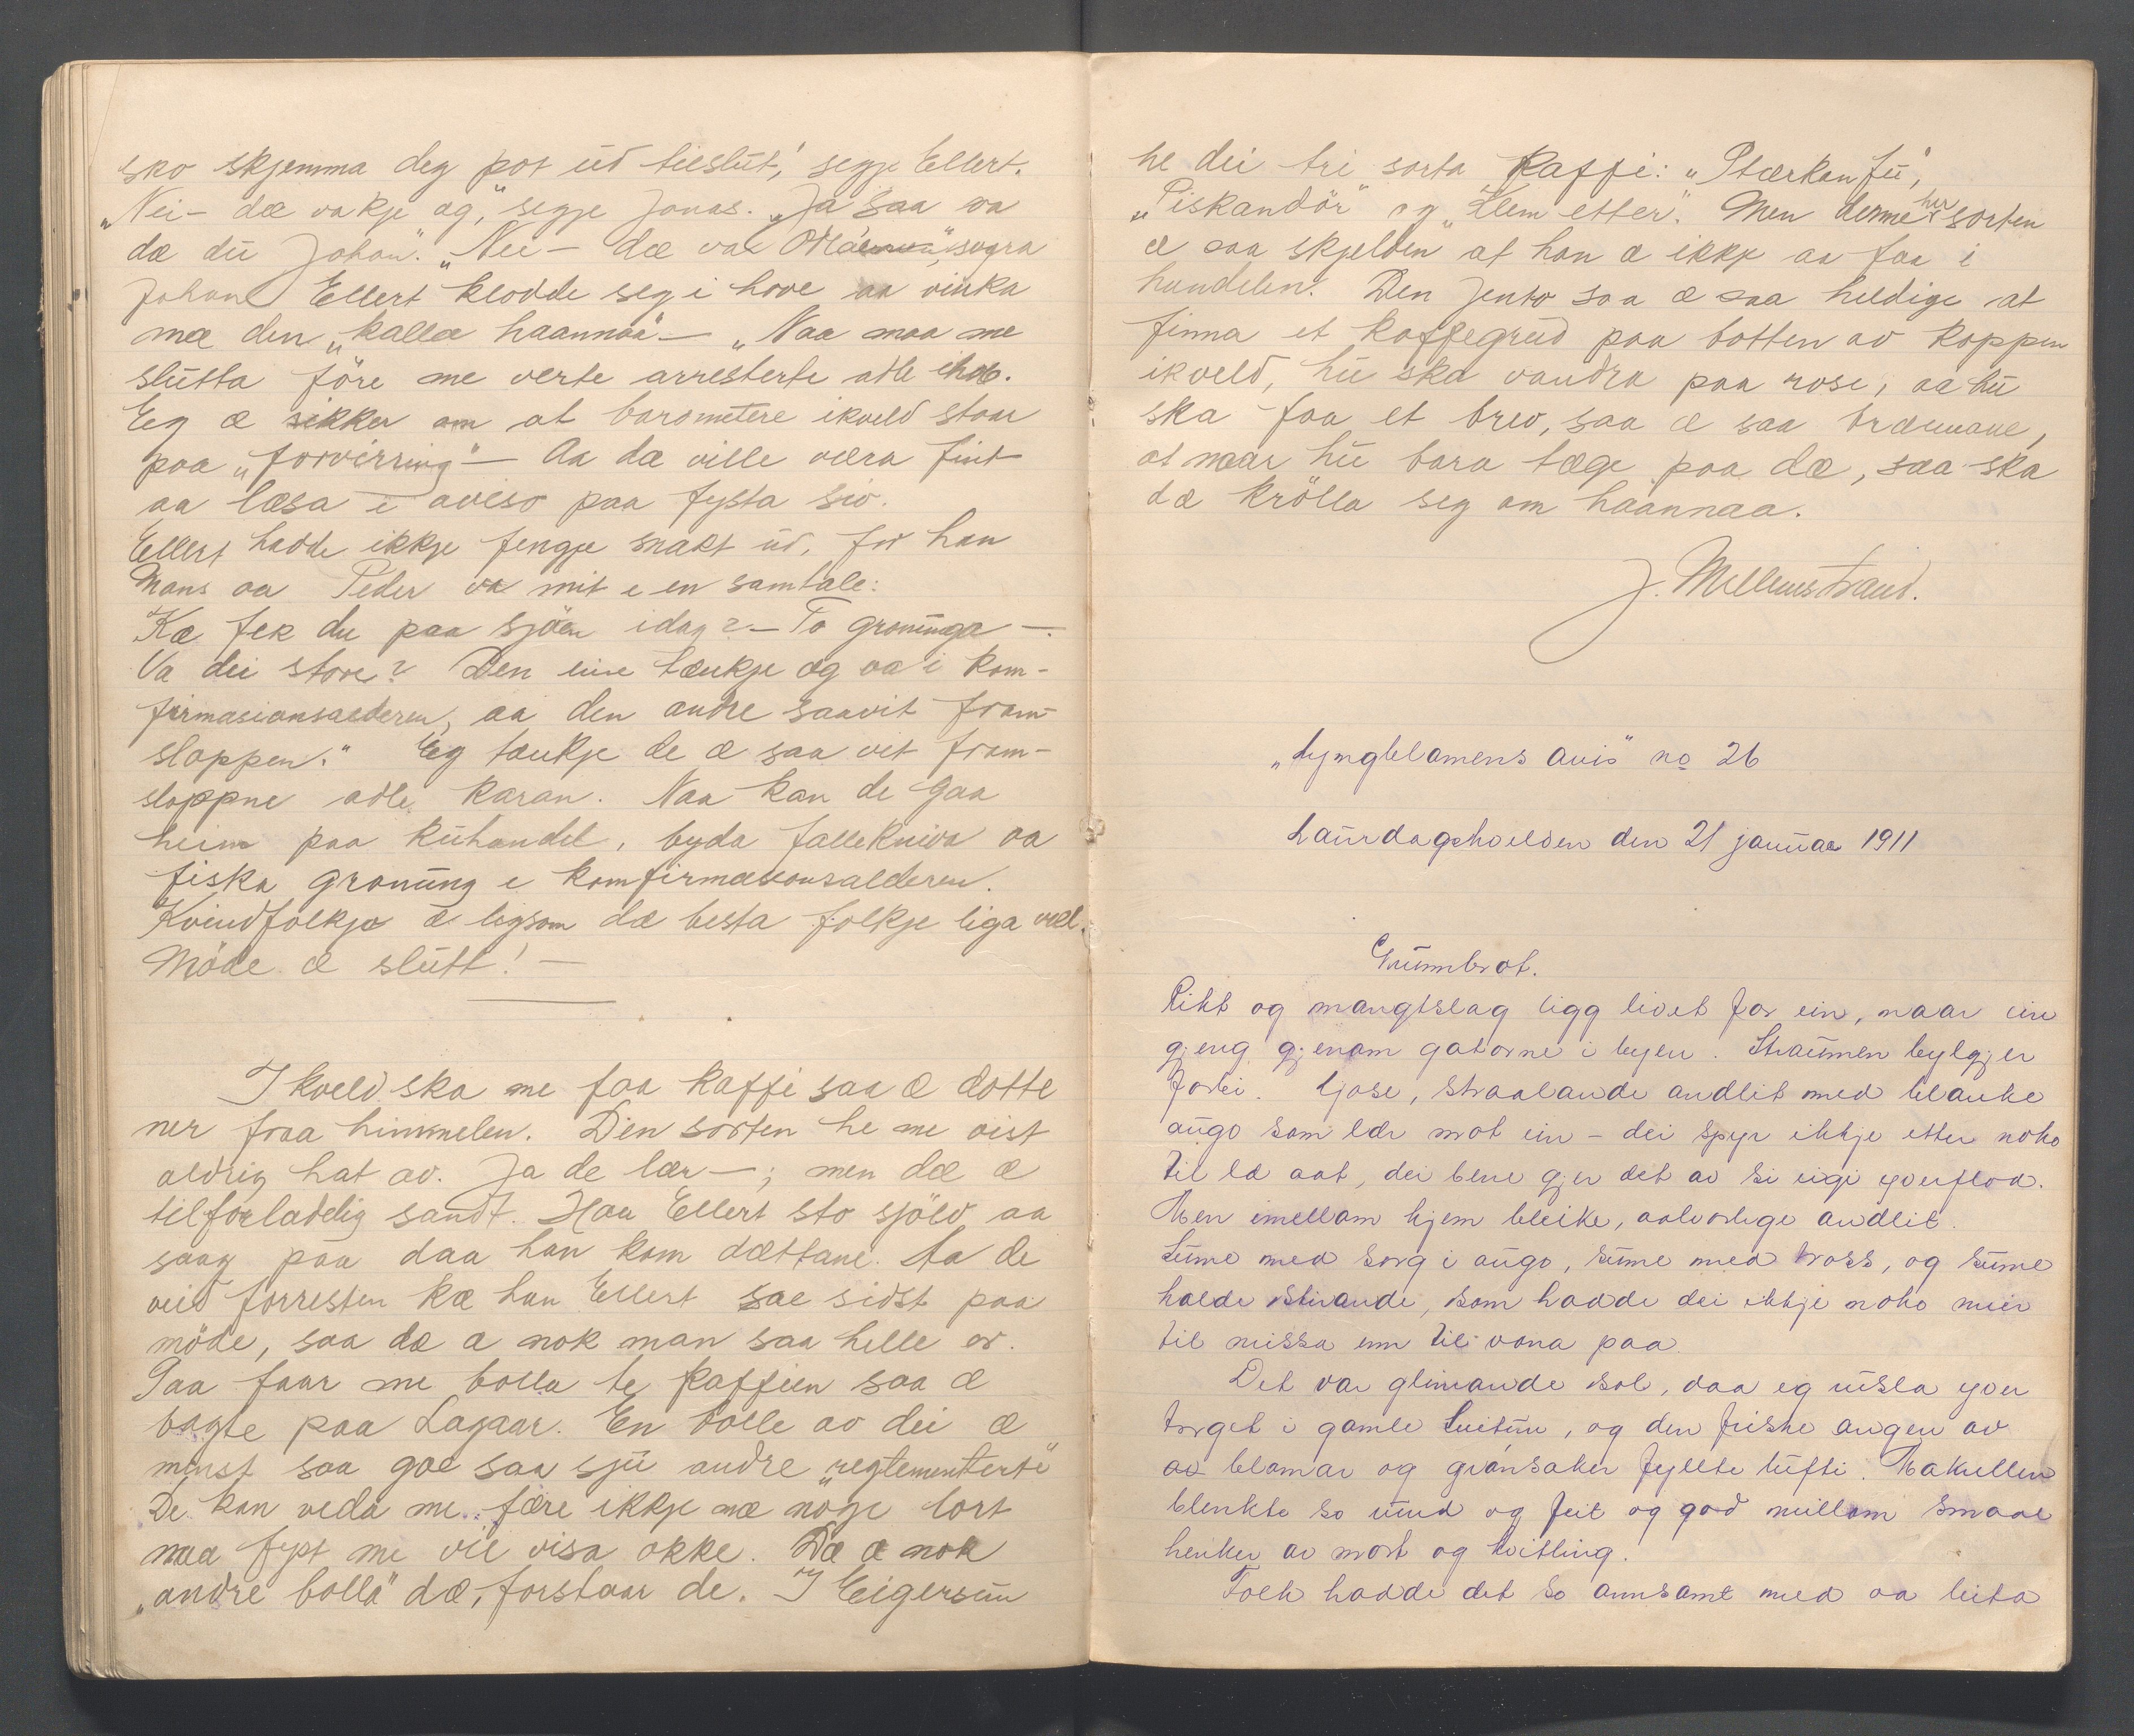 sko skjemma deg pot ud tieslut,' segje Ellert.
"Nei - dæ vakje eg," segje Jonas. "Ja saa va
dæ du Johan". "Nei - dæ vae sogra
Johan Ellert klodde seg i hove aa vinka
mæ den "kalla haannaa" - "Naa maa me
slutta före me verte arresterte adle ihob.
Eg æ sikker om at barometere ikveld staar
paa "forvirring" - Aa dæ ville væra fint
aa læsa i aviso paa fysta sio.
Ellert hadde ikkje fengje snakt ud, for han
Mons aa Peder va mit e en samtale:
Kæ fek du paa sjöen idag? - To gronunga -.
Va dei store? Den eine tænkje eg va i kom-
firmasionsalderen, aa den andre saavit fram-
sloppen." Eg tænkje de æ saa vit fram-
sloppne adle karan. Naa kan de gaa
heim paa kuhandel, byda fallekniva aa
fiska gronung e komfirmasionsalderen.
Kvindfolkje æ ligsom dæ besta folkje liga væl.
Möde æ slutt! -
I kveld ska me faa kaffi saa æ dotte
ner fraa himmelen. Den sorten he me vist
aldrig hat av. Ja de lær -; men dæ æ
tilforladelig sandt. Han Ellert sto sjölv aa
saag paa daa han kom dættane. Aa de
veid forresten kæ han Ellert sae sidst paa
möde, saa dæ æ nok man saa helle or.
Saa faar me bolla te kaffien saa æ
bagte paa Lagaar. En bolle av dei æ
minst saa goe saa sju andre "reglementerte"
De kan veda me fære ikkje mæ nöge lort
naa fyst me vil visa okke. Dæ æ nok
"andre bolla" dæ, forstaar de. I Eigersun
he dei tri sorta kaffi: "Stærkanfu",
"Piskandör" og "Klem etter". Men denne her sorten
æ saa skjelden at han æ ikkje aa faa i
handelen. Den jento saa æ saa heldige at
finna et kaffegrud paa botten av koppen
ikveld, hu ska vandra paa rose, aa hu
ska faa et brev, saa æ saa brænnane,
at naar hu bara tæge paa dæ, saa ska
dæ krölla seg om haannaa.
J. Mellemstrand.
"Lyngblomens avis" no 26
Laurdagskvelden den 21 januar 1911
Grunnbrot.
Rikt og mangtslag ligg livet for ein, naar ein
gjeng gjenom gatorne i byen. Straumen bylgjer
forbi. Ljose, straalande andlit med blanke
augo som lær mot ein - dei spyr ikkje etter noko
til læ aat, dei bere gjer det av si eigi yverflod.
Men imellom kjem bleike, aalvorlege andlit.
Sume med sorg i augo, sume med tross, og sume
halde stirande, som hadde dei ikkje noko meir
til missa enn til vona paa.
Det var glimande sol, daa eg rusla yver
torget i gamle , og den friske angen av
av blomar og grønsaker fyllte lufti. Makrellen
blenkte so rund og feit og god millom smaae
henker av mort og kvitling.
Folk hadde det so annsamt med aa leita